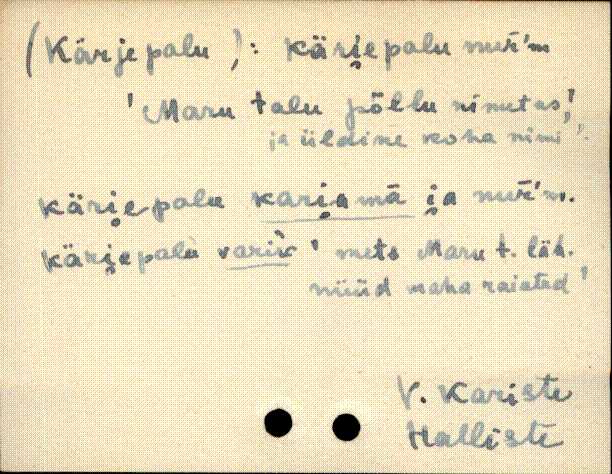 (Kärjepalu): käri̯epalu nur̄'m
'Maru talu põllu nimetus,'
ja üldine koha nimi'.
käri̯epalu kari̯a mā i̯a nur̄'m.
käri̯epalu variḱ ' mets Maru t. läh.
nüüd maha raiutud'
V. Kariste
Halliste